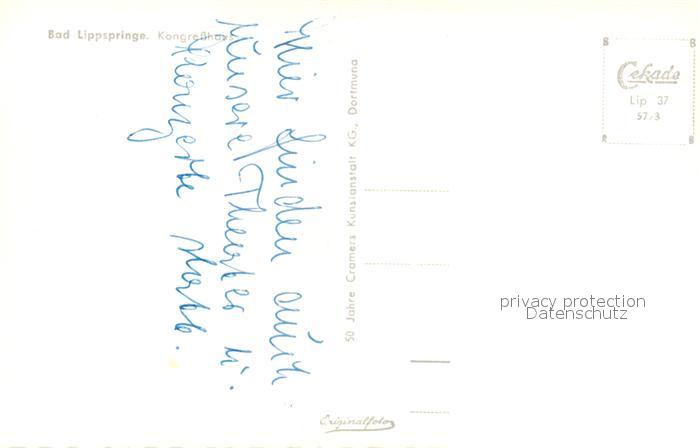 Bad Lippspringe. Kongreßhaus
Hier finden auch
unsere Theater u.
Konzerte statt.
50 Jahre Cramers Kunstanstalt KG., Dortmund
Cekade
Lip 37
57/3
privacy protection
Datenschutz
Originalfoto